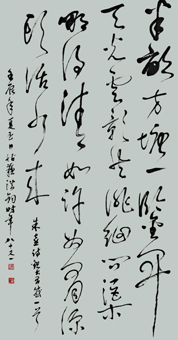 半畝方塘一鑑開
天光雲影共徘徊问渠
那得清如許为有源
頭活水来
朱熹詩觀書有感一首
壬辰年夏至日姑蘇時年八十又一